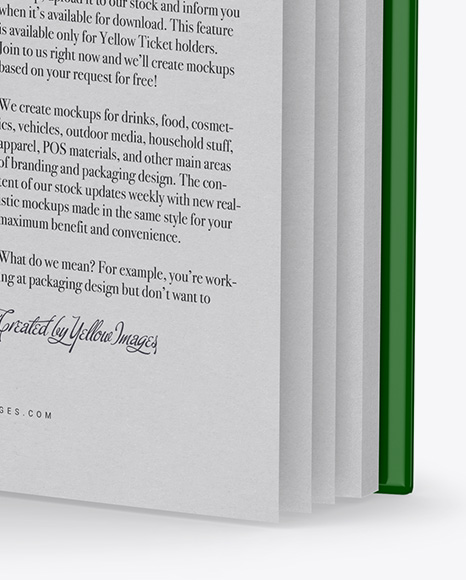 upload it to our stock and inform you
when it's available for download. This feature
is available only for Yellow Ticket holders.
Join to us right now and we'll create mockups
based on your request for free!
We create mockups for drinks, food, cosmet-
ics, vehicles, outdoor media, household stuff,
apparel, POS materials, and other main areas
of branding and packaging design. The con-
tent of our stock updates weekly with new real-
istic mockups made in the same style for your
maximum benefit and convenience.
What do we mean? For example, you're work-
ing at packaging design but don't want to
Created by Yellow Images
GES.COM